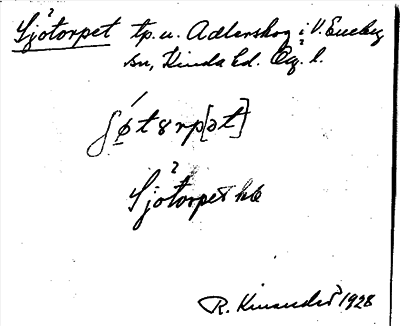 Sjötorpet tp. u. Adlerskog i V. Eneby
sn, Kinda hd. Ög. l.
ʃǿtɞrp[ət]
Sjötorpet hb
R. 1928